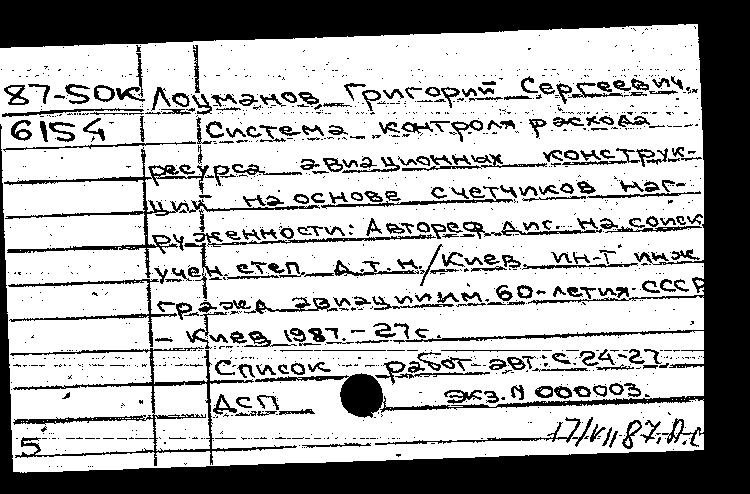 87-50к Лоцманов Григорий Сергеевич.
6154 Система контроля расхода
ресурса авиационных конструк-
ций на основе счетчиков наг-
руженности: Автореф дис. на соиск
учен степ д.т.н./Киев ин-т инж
гражд авиации им. 60-летия СССР
- Киев 1987. - 27с.
Список работ авт: с 24-27
ДСП экз. N 000003.
5 17/VII 87. Л.С